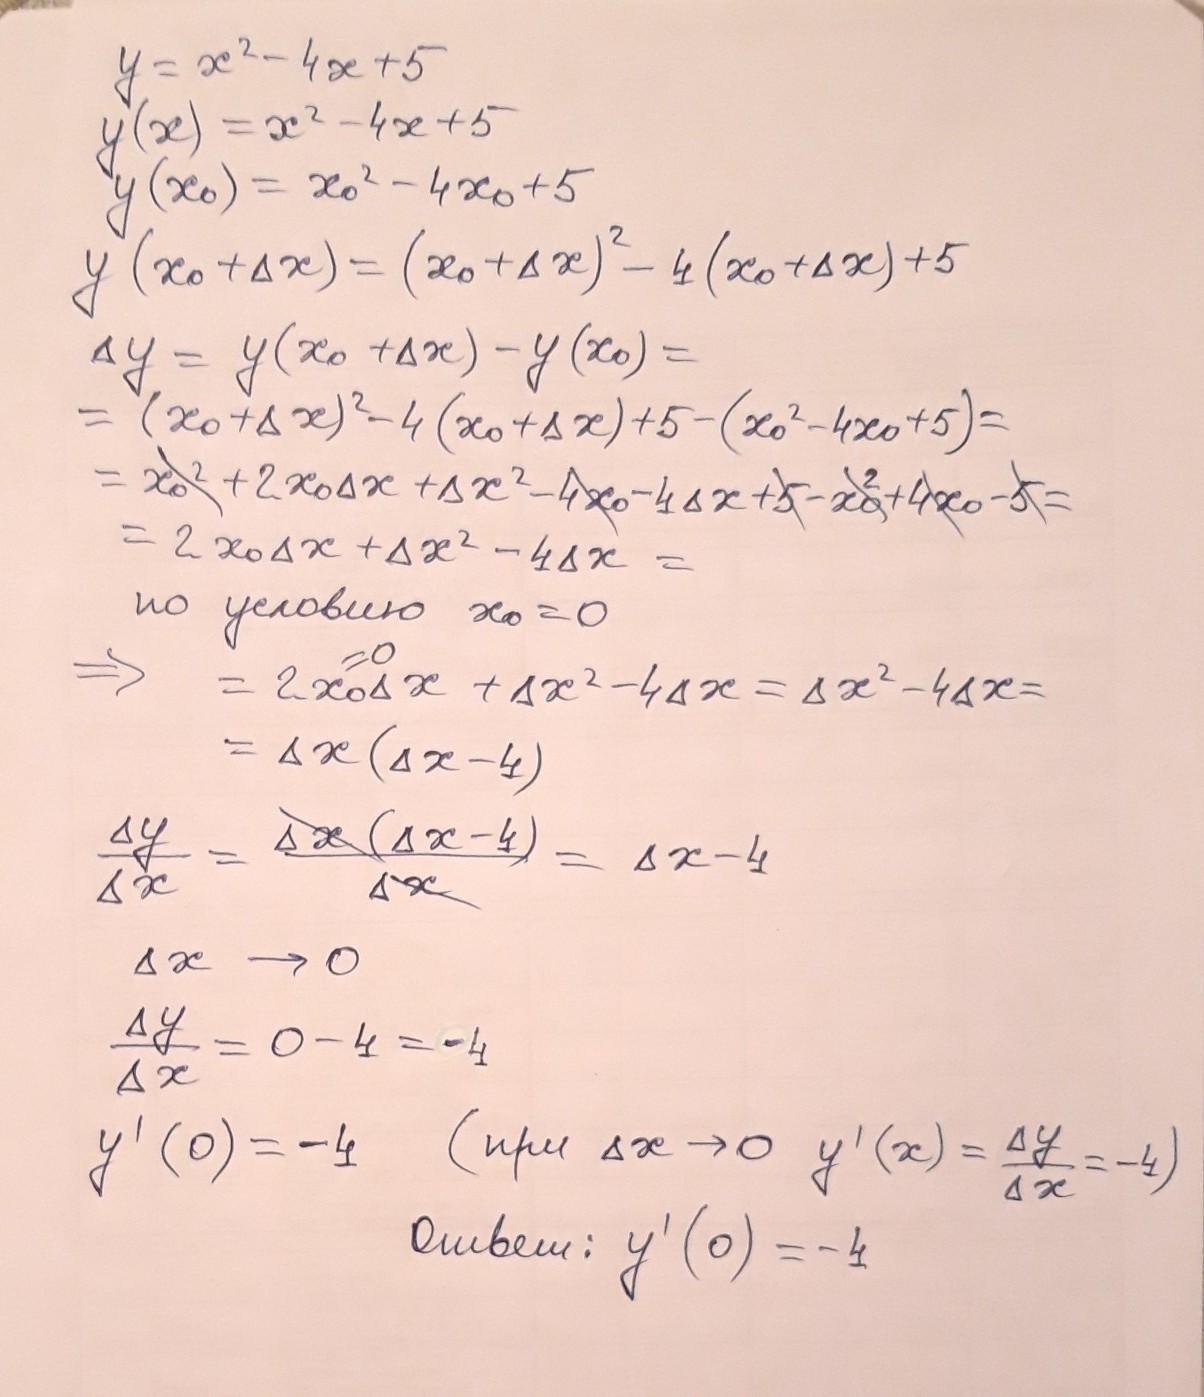 y = x² - 4x + 5
y(x) = x² - 4x + 5
y(x₀) = x₀² - 4x₀ + 5
y(x₀ + Δx) = (x₀ + Δx)² - 4(x₀ + Δx) + 5
Δy = y(x₀ + Δx) - y(x₀) =
= (x₀ + Δx)² - 4(x₀ + Δx) + 5 - (x₀² - 4x₀ + 5) =
= x₀² + 2x₀Δx + Δx² - 4x₀ - 4Δx + 5 - x₀² + 4x₀ - 5 =
= 2x₀Δx + Δx² - 4Δx =
по условию x₀ = 0
=0
⇒ = 2x₀Δx + Δx² - 4Δx = Δx² - 4Δx =
= Δx(Δx - 4)
Δy/Δx = Δx(Δx - 4)/Δx = Δx - 4
Δx → 0
Δy/Δx = 0 - 4 = -4
y'(0) = -4 (при Δx → 0 y'(x) = Δy/Δx = -4)
Ответ: y'(0) = -4